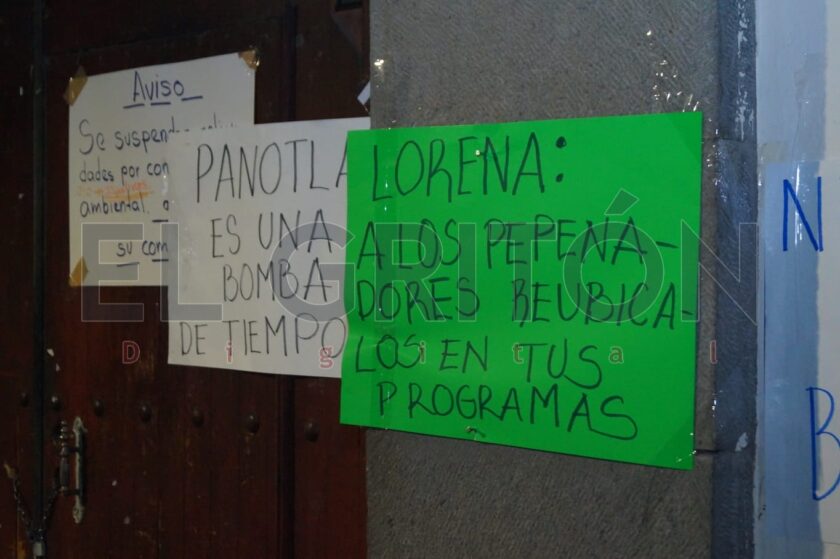 Aviso
Se suspenden
dades por con
ambiental.
su com
PANOTLA
ES UNA
BOMBA
DE TIEMPO
LORENA:
A LOS PEPENA-
DORES REUBICA-
LOS EN TUS
PROGRAMAS
N
B
EL GRITÓN
Digital